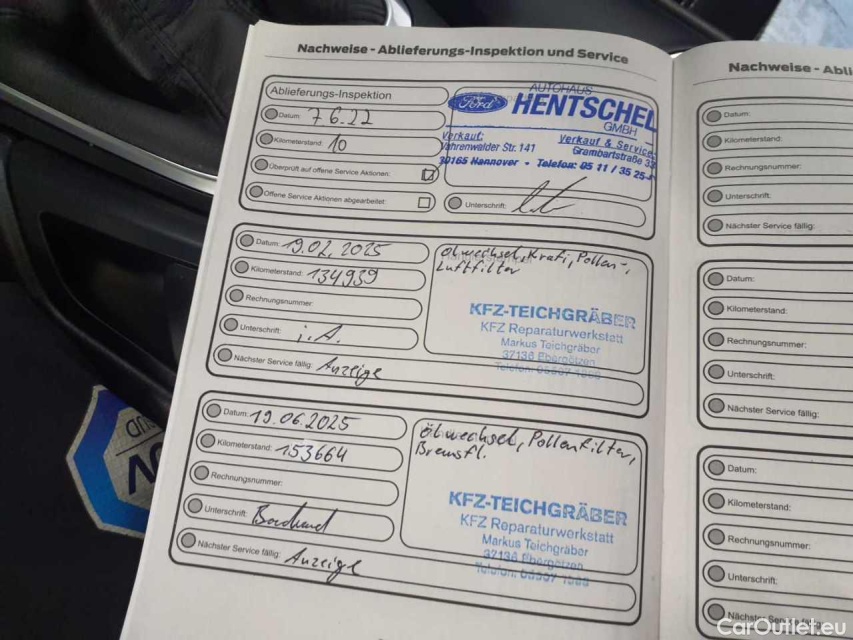 Nachweise - Ablieferungs-Inspektion und Service
Ablieferungs-Inspektion
Datum: 7.6.22
Kilometerstand: 10
Überprüft auf offene Service Aktionen:
Offene Service Aktionen abgearbeitet:
AUTOHAUS
Ford HENTSCHEL
GMBH
Verkauf: Verkauf & Service:
Vahrenwalder Str. 141 Grambartstraße
30165 Hannover • Telefon: 05 11 / 35 25-
Unterschrift:
Datum: 19.02.2025
Kilometerstand: 134939
Rechnungsnummer:
Unterschrift: i.A.
Nächster Service fällig: Anzeige
Ölwechsel, Pollen-,
Luftfilter
KFZ-TEICHGRÄBER
KFZ Reparaturwerkstatt
Markus Teichgräber
37136 Ebergötzen
Telefon: 05507
Datum: 19.06.2025
Kilometerstand: 153664
Rechnungsnummer:
Unterschrift:
Nächster Service fällig: Anzeige
Ölwechsel, Pollenfilter,
Bremsfl.
KFZ-TEICHGRÄBER
KFZ Reparaturwerkstatt
Markus Teichgräber
37136 Ebergötzen
Telefon: 05507
Nachweise - Abli
Datum:
Kilometerstand:
Rechnungsnummer:
Unterschrift:
Nächster Service fällig:
Datum:
Kilometerstand:
Rechnungsnummer:
Unterschrift:
Nächster Service fällig:
Datum:
Kilometerstand:
Rechnungsnummer:
Unterschrift:
Nächster Service fällig:
CarOutlet.eu